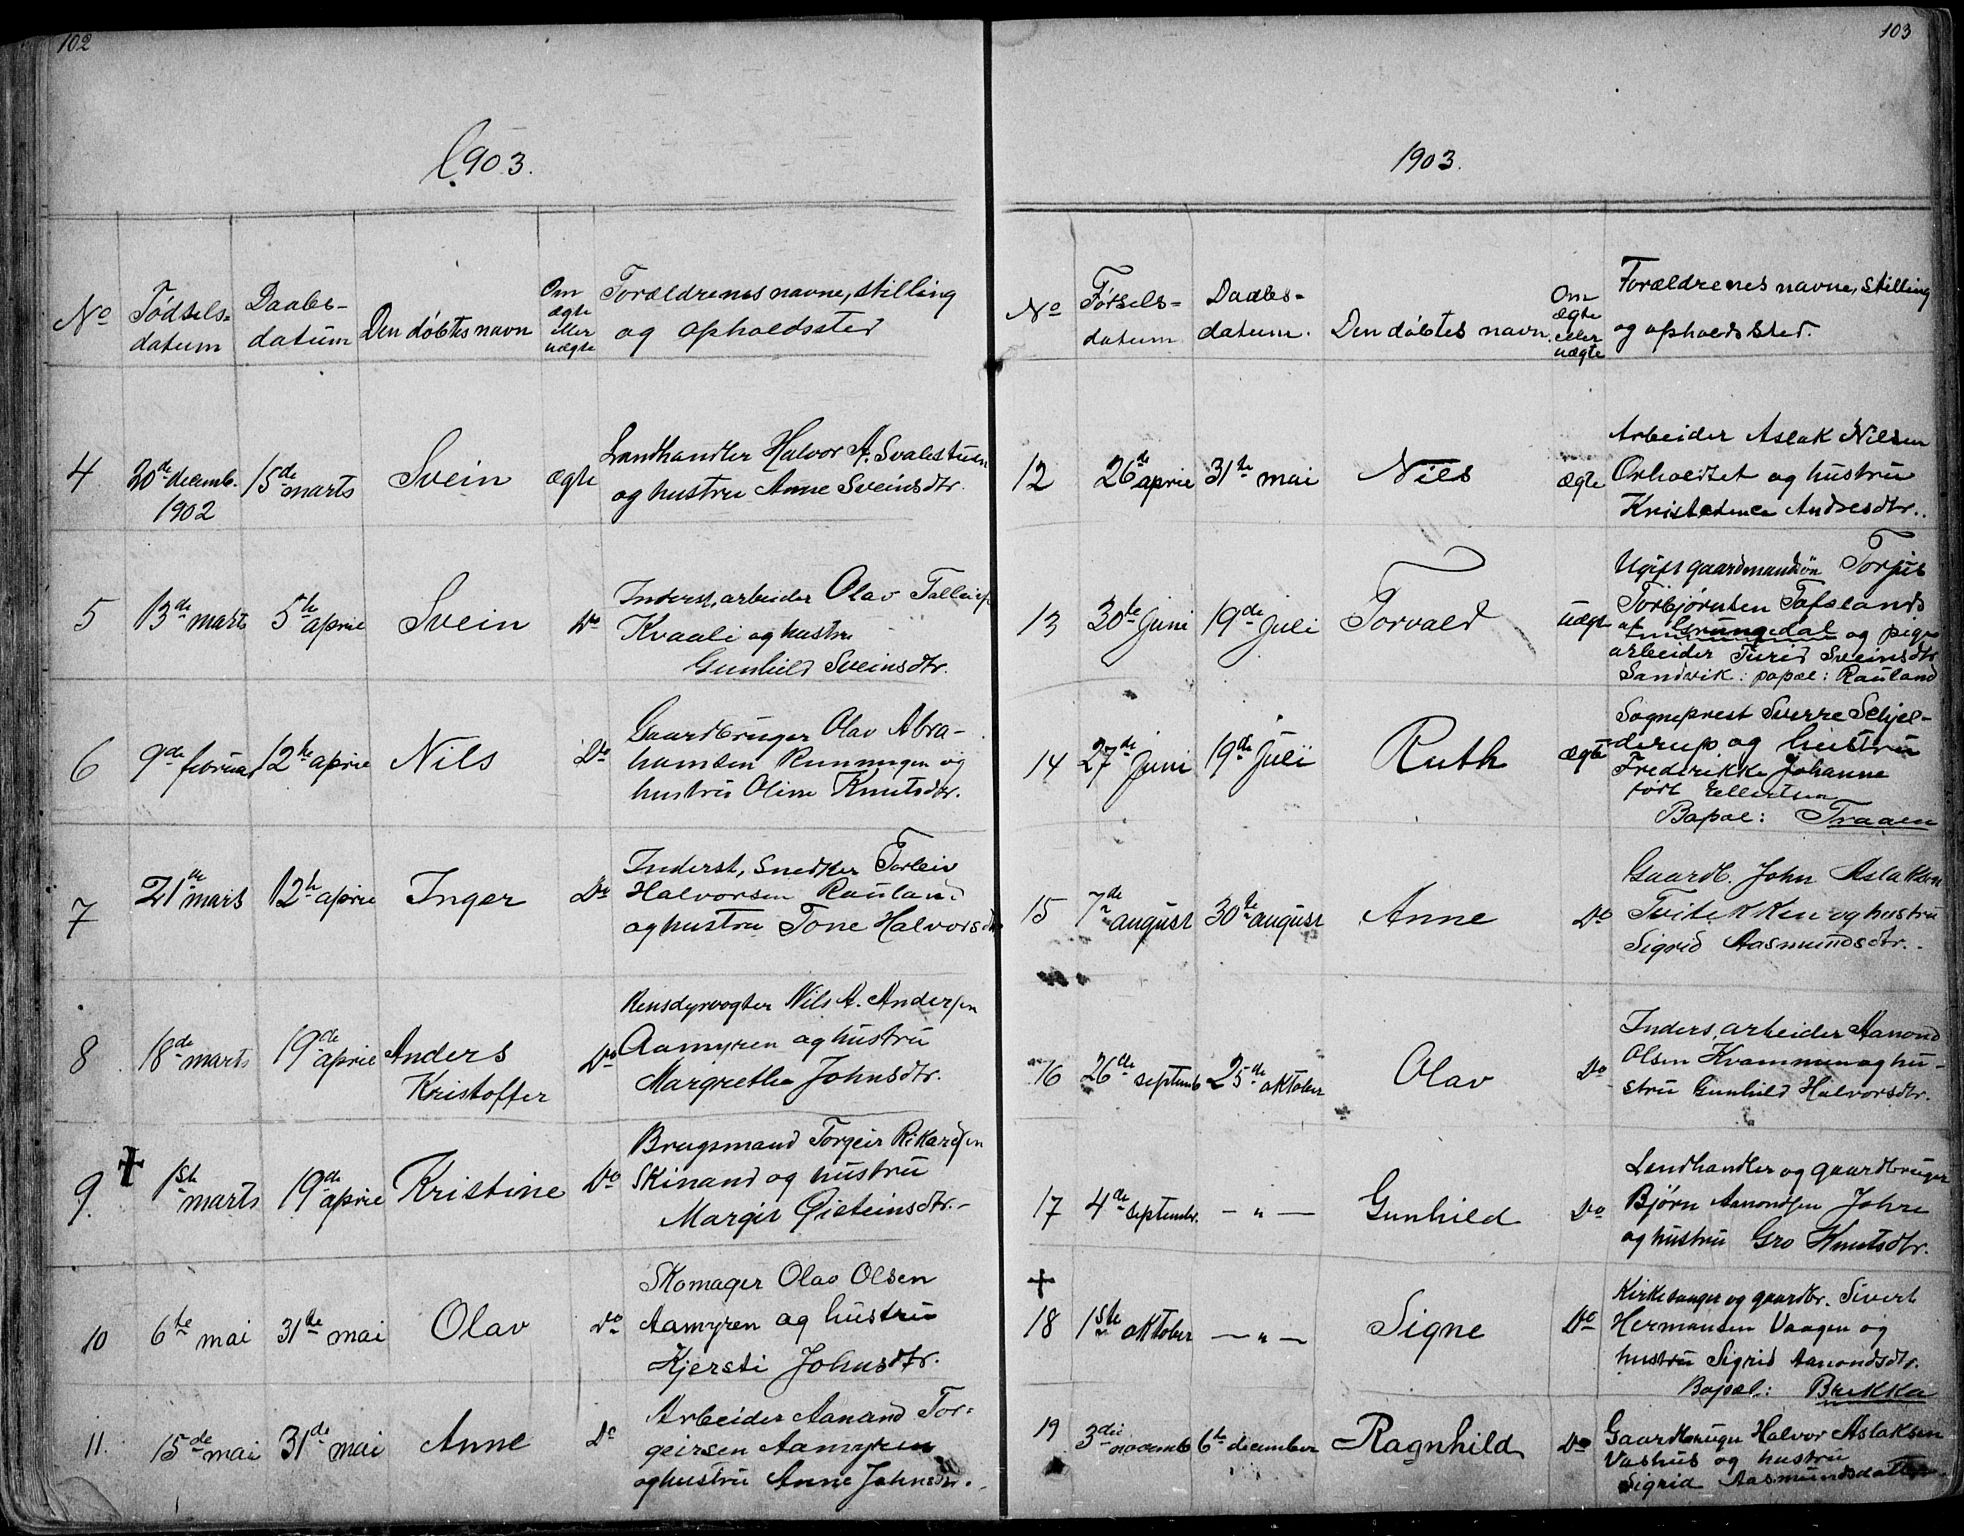 102
1903.
No Fødsels= datum Daabs- datum Den døbtes navn Om ægte eller uægte Forældrenes navne, stilling og opholdssted
4 20de decemb. 1902 15de marts Svein ægte Landhandler Halvor A. Svalestuen
og hustru Anne Sveinsdtr.
5 13de marts 5te april Svein Do Inderst, arbeider Olav
Kvaali og hustru
Gunhild Sveinsdtr.
6 9de februar 12te april Nils Do Gaardbruger Olav Abra-
hamsen Runningen og
hustru Oline Knutsdtr.
7 21de marts 12te april Inger Do Inderst, Snedker Torleiv
Halvorsen Rauland
og hustru Tone Halvorsdtr
8 18de marts 19de april Anders Kristoffer Do Rensdyrvogter Nils A. Andersen
Aamyren og hustru
Margrethe Johnsdtr.
9 + 1ste marts 19de april Kristine Do Brugsmand Torgeir Rikardsen
Skinand og hustru
Margit Øisteinsdtr.-
10 6te mai 31te mai Olav Do Skomager Olav Olsen
Aamyren og hustru
Kjersti Johnsdtr.
11. 15de mai 31de mai Anne Do Arbeider Aanand Tor=
geirsen Aamyren
og hustru Anne Johnsdtr.
103
1903.
No Fødsels= datum Daabs= datum. Den døbtes navn. Om ægte eller uægte Forældrenes navne, stilling
og opholdssted.
12 26de april 31te mai Nils ægte Arbeider Aslak Nilsen
Orholdtet og hustru
Andresdtr.
13 30te Juni 19de Juli Torvald uægte Ugift gaardmandsøn Torjus
Torbjørnsen Tofslands
af Grungedal og pige
arbeider Turid Sveinsdtr
Sandvik: popæl: Rauland
14 27de Juni 19de Juli Ruth ægte Sogneprest Sverre Schjel-
derup og hustru
Frederikke Johanne
født Ellertsen
Bopæl: Traaen
15 7de august 30te august Anne Do Gaardb. John Aslaksen
Tvitekken og hustru
Sigrid Aasmundsdtr.
16 26de septemb 25de oktober Olav Do Inders, arbeider Aanond
Olsen Kvammen og hu-
stru Gunhild Halvorsdtr.
17 4de septembr. — " — Gunhild Do Landhandler og gaardbruger
Bjørn Aanondsen Johre
og hustru Gro Knutsdtr.
+
18 1ste oktober — " — Signe Do Kirkesanger og gaardbr. Sivert
Hermansen Vaagen og
hustru Sigrid Aanondsdtr.
Bopæl: Brekka
19 3die novemb 6te december Ragnhild Do Gaardbruger Halvor Aslaksen
Vashus og hustru
Sigrid Aasmundsdatter.